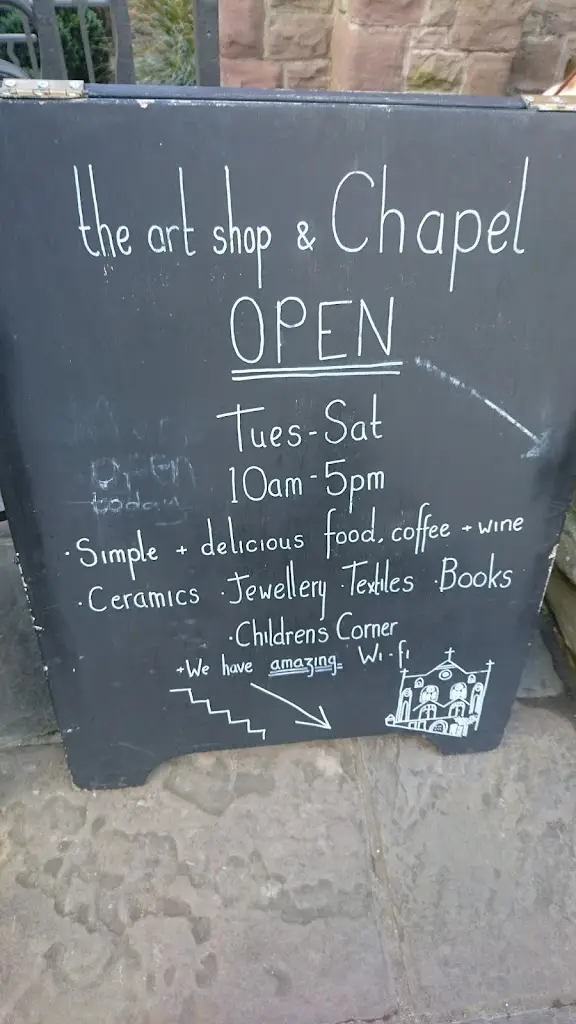 the art shop & Chapel
OPEN
Tues-Sat
10am-5pm
open
today
·Simple + delicious food, coffee + wine
·Ceramics ·Jewellery ·Textiles ·Books
·Childrens Corner
+We have amazing Wi-fi